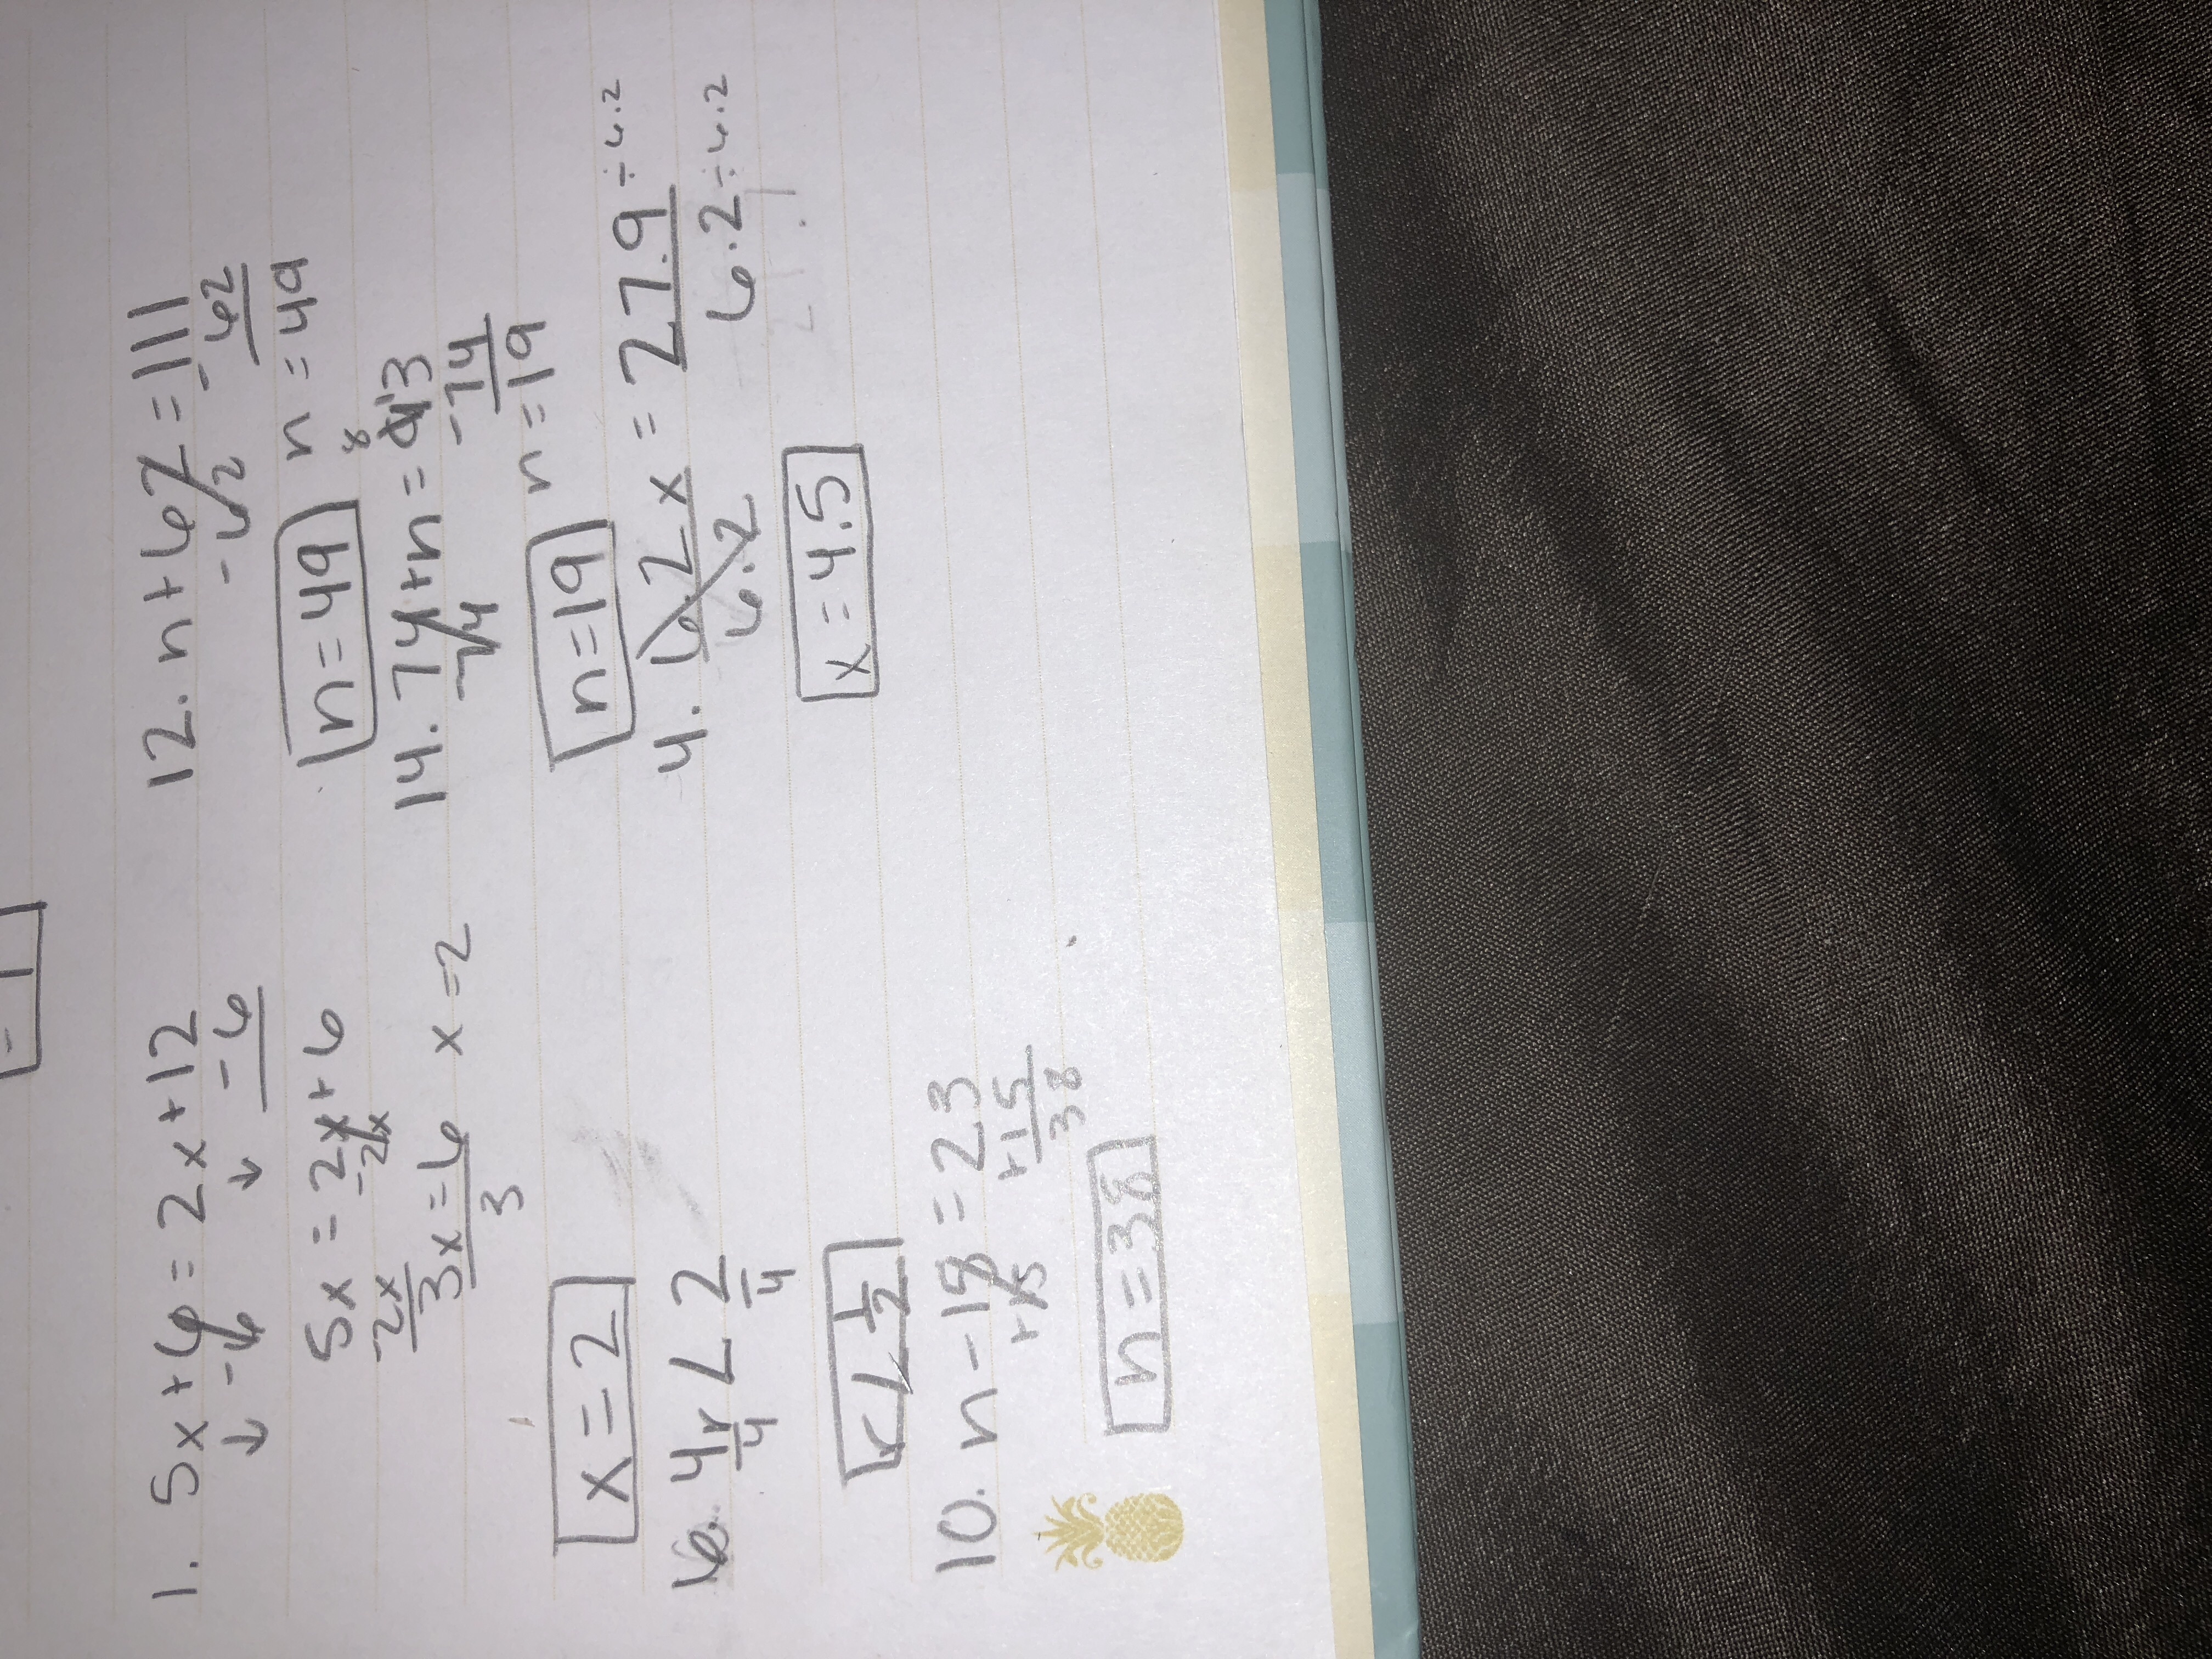 - 1
1. 5x + 6 = 2x + 12
↓ - 6 ↓ - 6
5x = 2x + 6
-2x -2x
3x = 6 x = 2
3
x = 2
6. 4x < 2
4 4
x < 1/2
10. n - 18 = 23
+15 +15
38
n = 38
12. n + 62 = 111
- 62 - 62
n = 49 n = 49
8
14. 74 + n = 913
-74 - 74
n = 19 n = 19
4. 6.2x = 27.9 ÷ 6.2
6.2 6.2 ÷ 6.2
x = 4.5